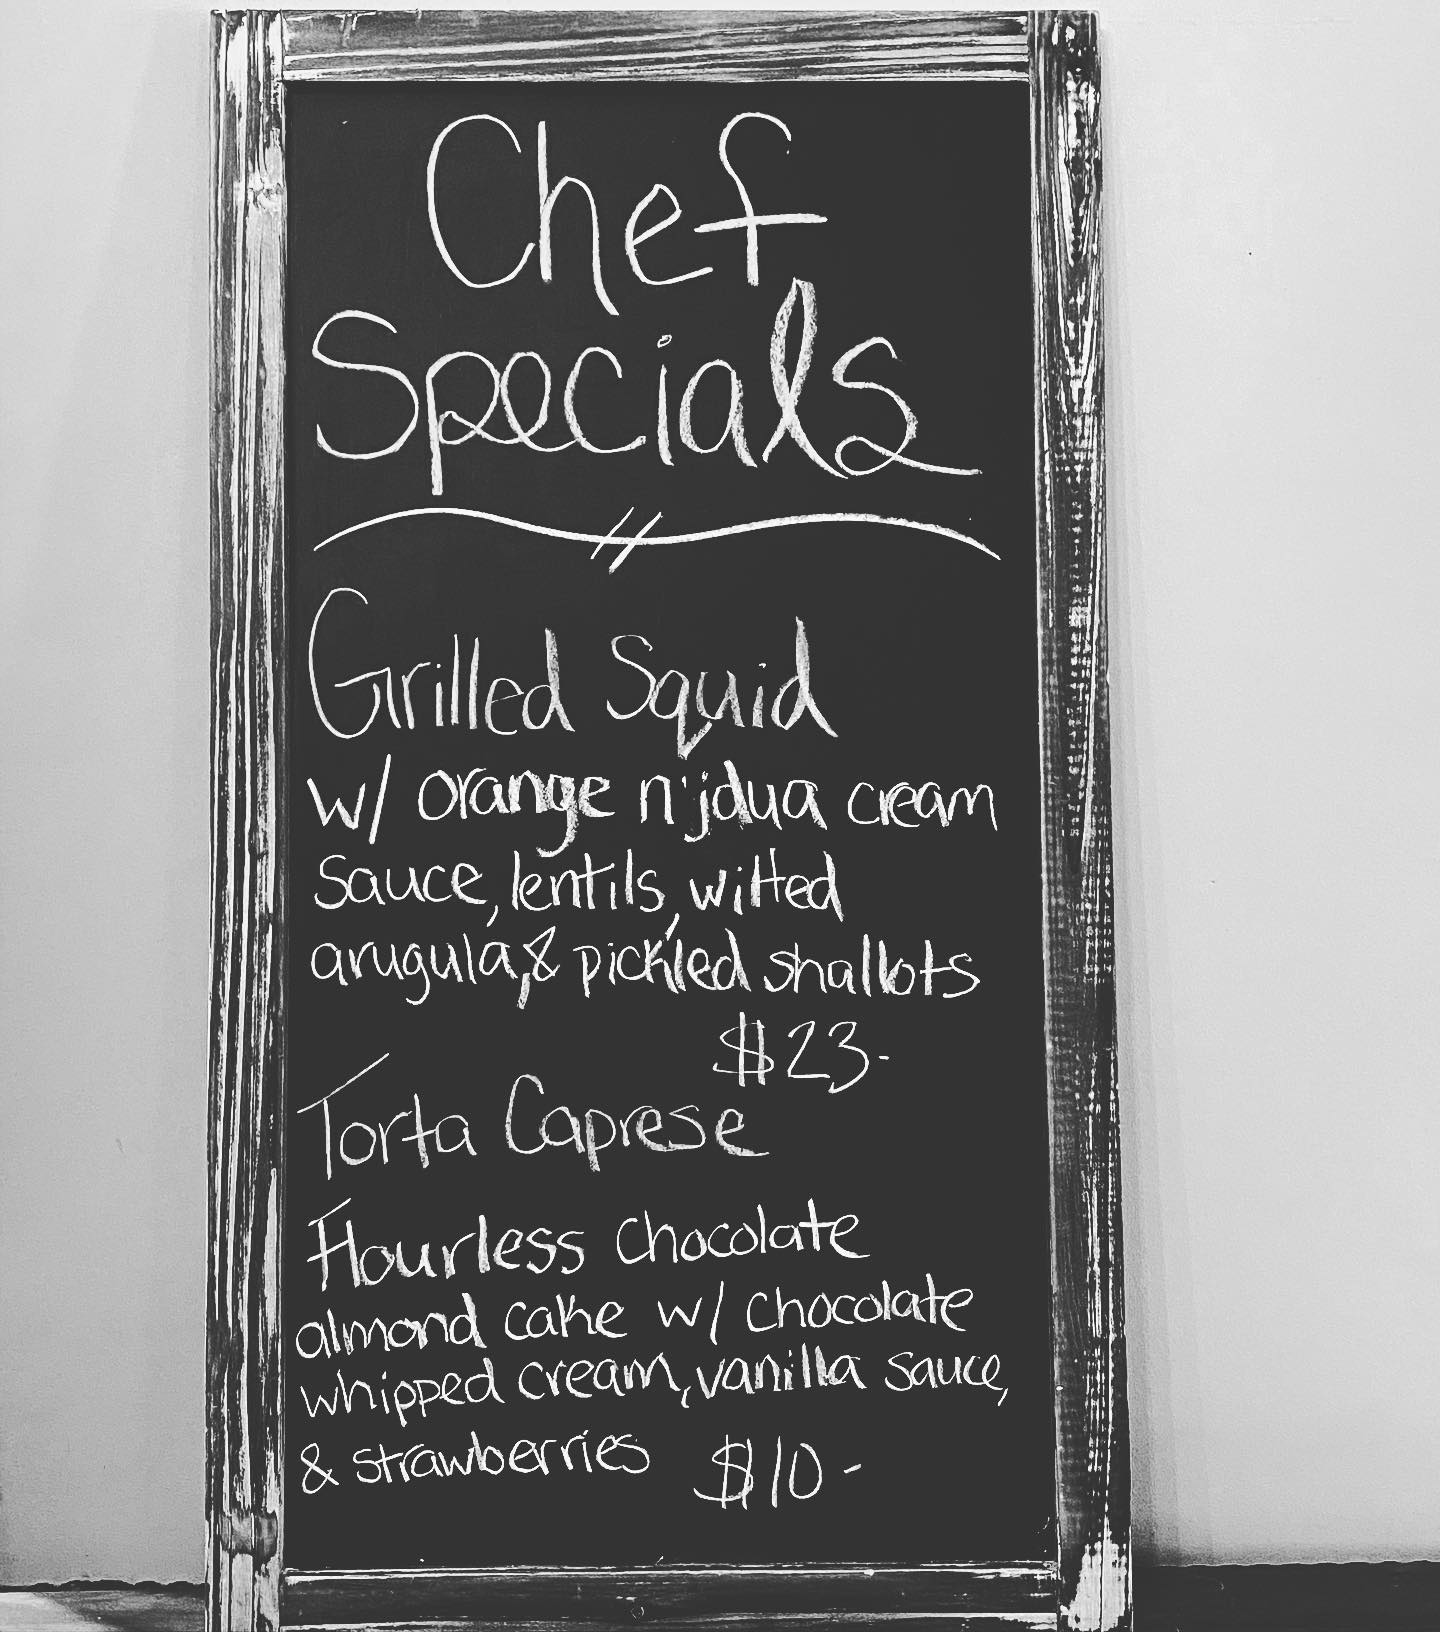 Chef
Specials
Grilled Squid
w/ orange n'jdua cream
sauce, lentils, wilted
arugula, & pickled shallots
$23-
Torta Caprese
Flourless chocolate
almond cake w/ chocolate
whipped cream, vanilla sauce,
& strawberries $10-